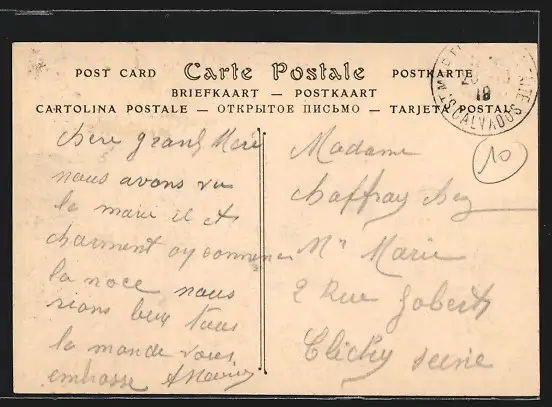 POST CARD Carte Postale POSTKARTE
BRIEFKAART — POSTKAART
CARTOLINA POSTALE — ОТКРЫТОЕ ПИСЬМО — TARJETA POSTAL
19
10
chere grand Mere
nous avons vu
la marie il et
charment
la noce nous
rions tous
la monde vous
embrasse
Madame
Chaffray chez
Mr Marie
2 Rue Goberts
Clichy seine